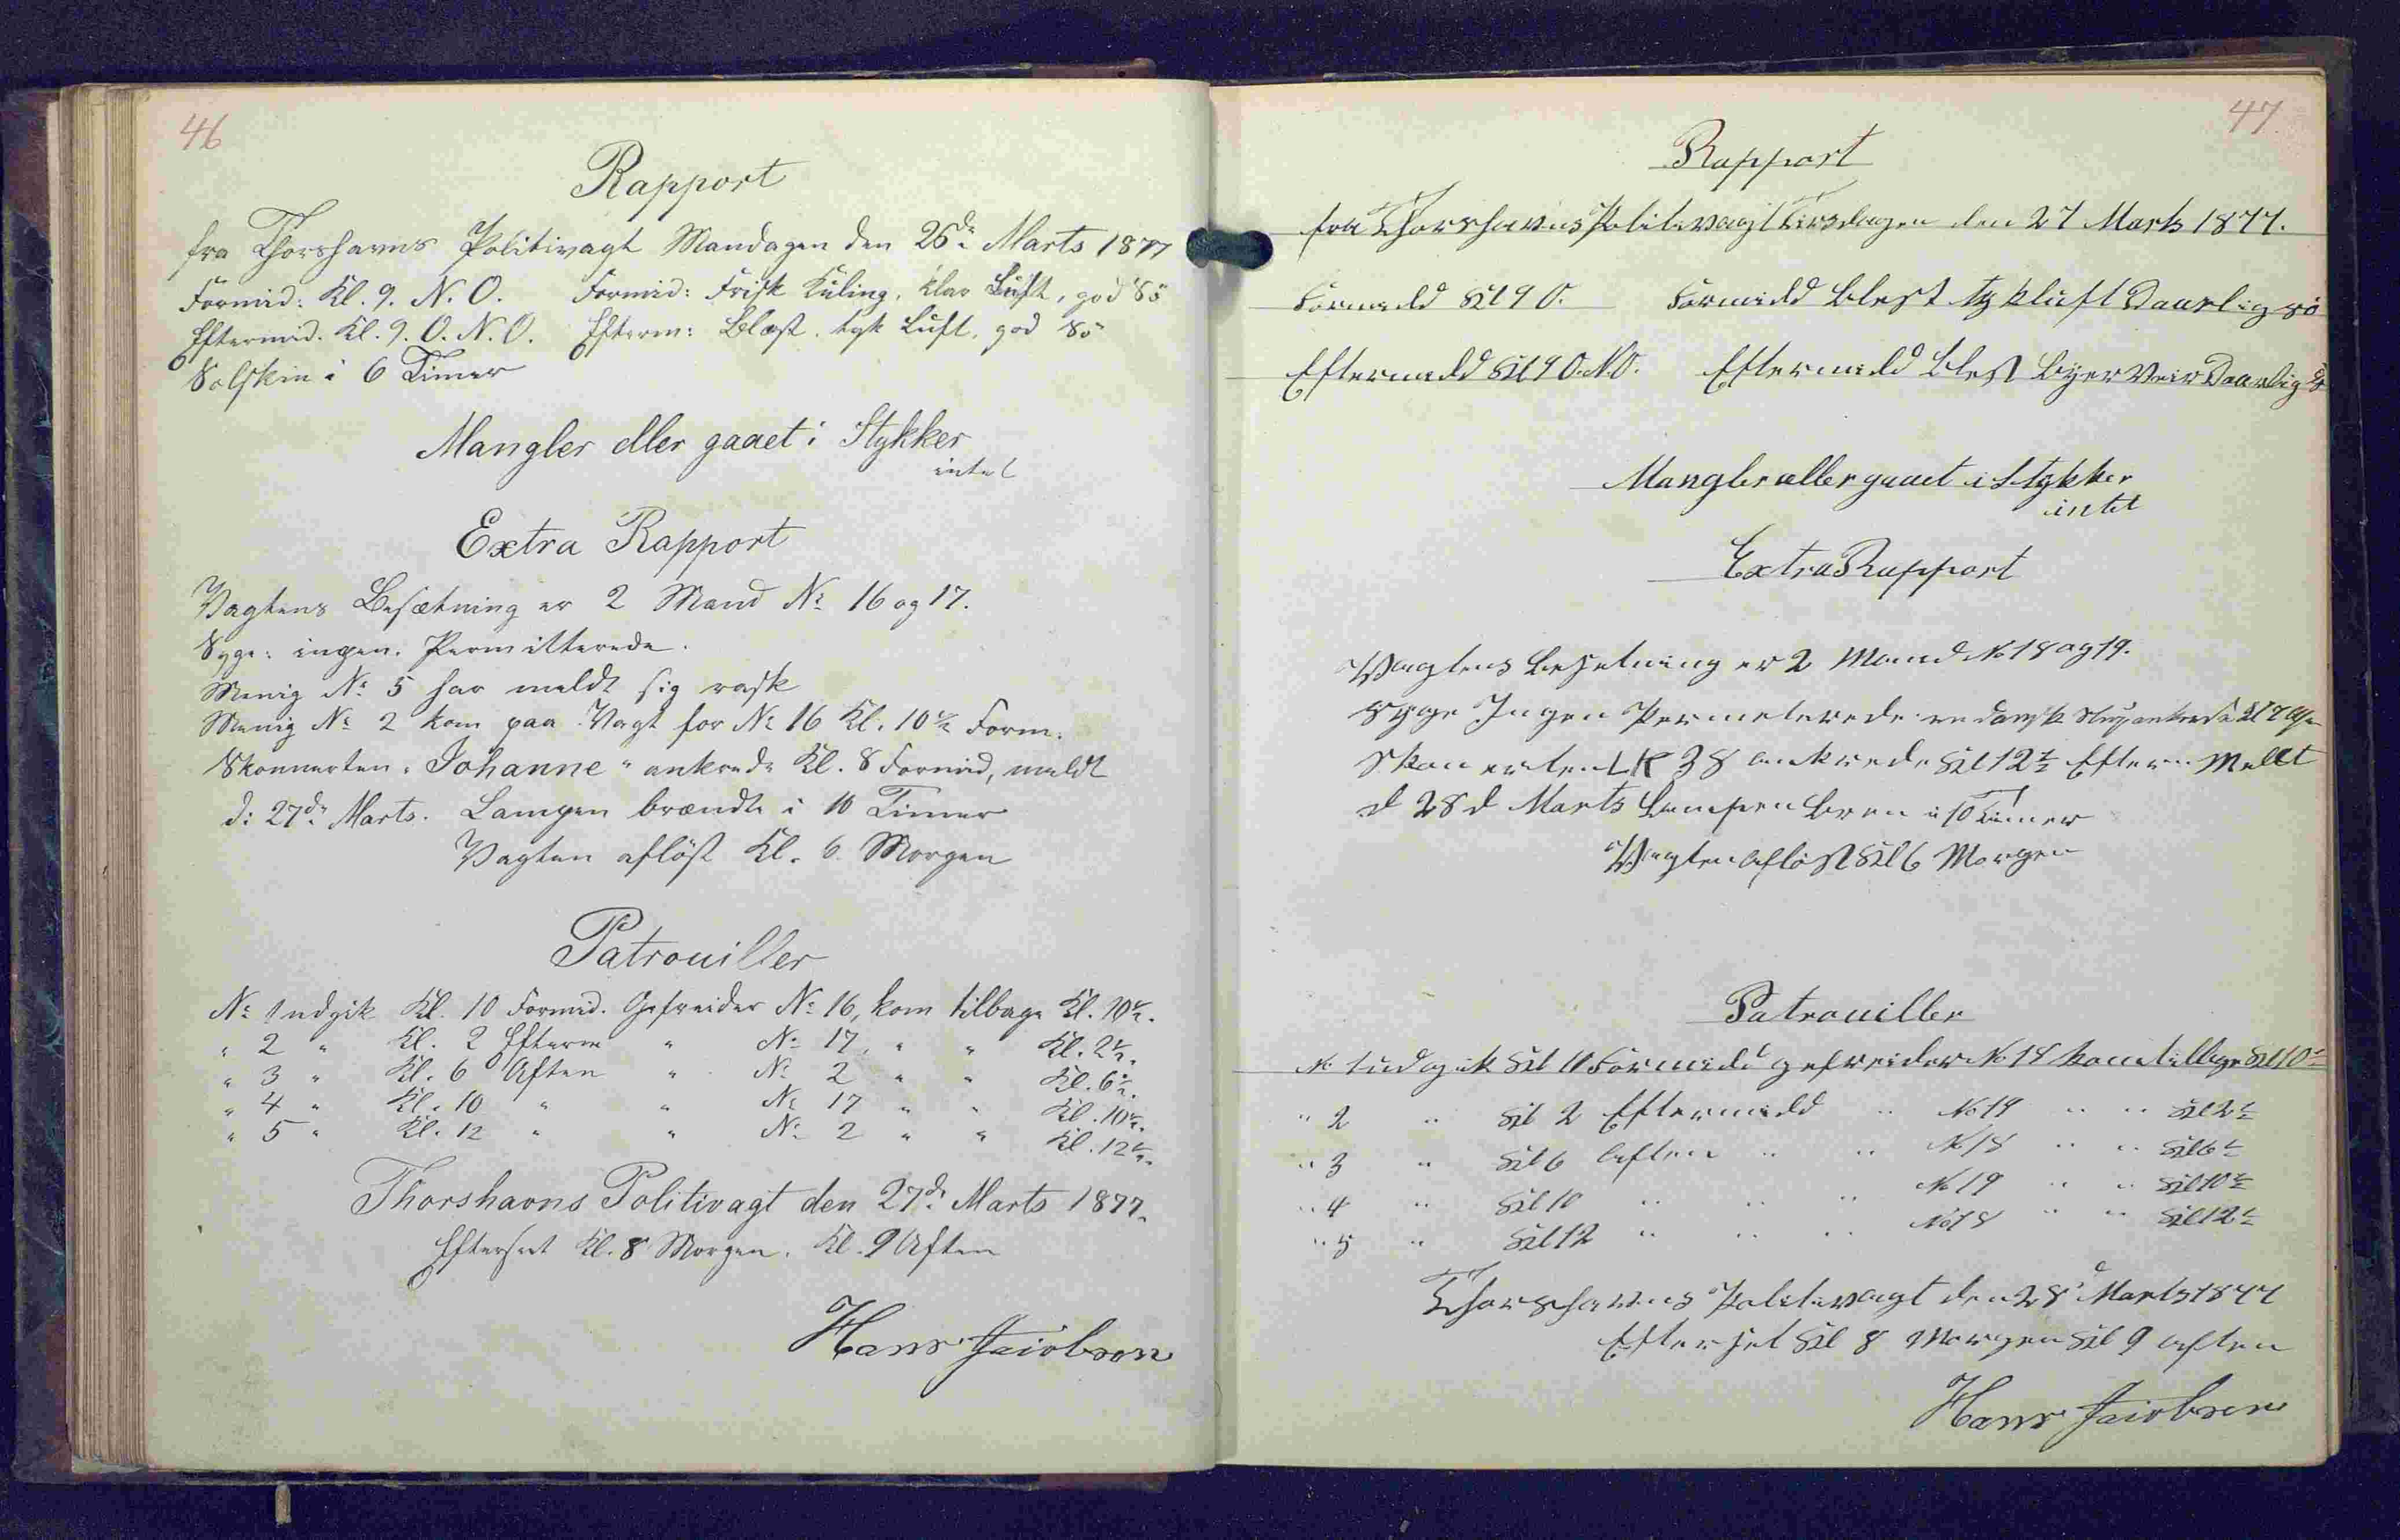 46
Rapport
fra Thorshavns Politivagt Mandagen den 26de Marts 1877
Formid: Kl. 9. N. O. Formid: Frisk Kuling, klar Luft, god Sö
Eftermid. Kl. 9. O. N. O. Efterm: Blæst, tyk Luft, god Sö
Solskin i 6 Timer
Mangler eller gaaet i Stykker
intet
Extra Rapport
Vagtens Besætning er 2 Mand No 16 og 17.
Syge: ingen. Permitterede.
Menig No 5 har meldt sig rask
Menig No 2 kom paa Vagt for No 16 Kl. 10½ Form.
Skonnerten "Johanne" ankrede Kl. 8 Formid, meldt
d: 27de Marts. Lampen brændte i 10 Timer
Vagten aflöst Kl. 6 Morgen
Patrouiller
No 1 udgik Kl. 10 Formid. Gefreider No 16, kom tilbage Kl. 10½.
" 2 " Kl. 2 Efterm " No 17 " " Kl. 2½.
" 3 " Kl. 6 Aften " No 2 " " Kl. 6½.
" 4 " Kl. 10 " " No 17 " " Kl. 10½.
" 5 " Kl. 12 " " No 2 " " Kl. 12½.
Thorshavns Politivagt den 27de Marts 1877.
Efterseet Kl. 8 Morgen. Kl. 9 Aften
Hans Jacobsen
47
Rapport
fra Thorshavns Politivagt Tirsdagen den 27 Marts 1877.
Formidd Kl 9 O. Formidd Blest tyk luft Daarlig sö
Eftermidd Kl 9 O.N.O. Eftermidd Blest Byer Veir Daarlig
Mangler eller gaaet i Stykker
intet
Extra Rapport
Vagtens Besetning er 2 Mand No 18 og 19.
Syge Ingen Permeterede en dansk ankrede Kl 7
Skonerten LK 38 ankrede Kl 12½ Efterm Mellt
d 28 d Marts Lampen Bren i 10 Timer
Vagten aflöst Kl 6 Morgen
Patrouiller
No 1 udgik Kl 10 Formidd gefreider No 18 kom tilbage Kl 10½
" 2 " Kl 2 Eftermidd " No 19 " " Kl 2½
" 3 " Kl 6 Aften " " No 18 " Kl 6½
" 4 " Kl 10 " " " No 19 " " Kl 10½
" 5 " Kl 12 " " " No 18 " " Kl 12½
Thorshavns Politivagt den 28d Marts 1877
Efterset Kl 8 Morgen Kl 9 Aften
Hans Jacobsen